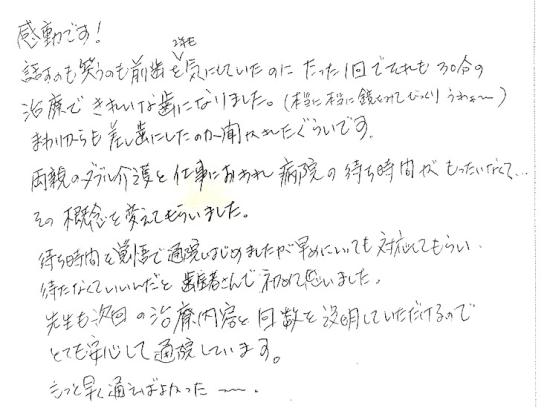 感動です！
話すのも笑うのも前歯を2年も気にしていたのに たった1回でそれも30分の
治療できれいな歯になりました。（本当に本当に鏡をみてびっくり うわぁ〜）
まわりからも差し歯にしたのか聞かれたぐらいです。
両親のダブル介護と仕事におわれ 病院の待ち時間が もったいなくて…
その概念を変えてもらいました。
待ち時間を覚悟で通院はじめましたが早めにいっても対応してもらい、
待たなくていいんだと 歯医者さんで初めて思いました。
先生も次回の治療内容と回数を説明していただけるので
とても安心して通院しています。
もっと早く通えばよかった〜。